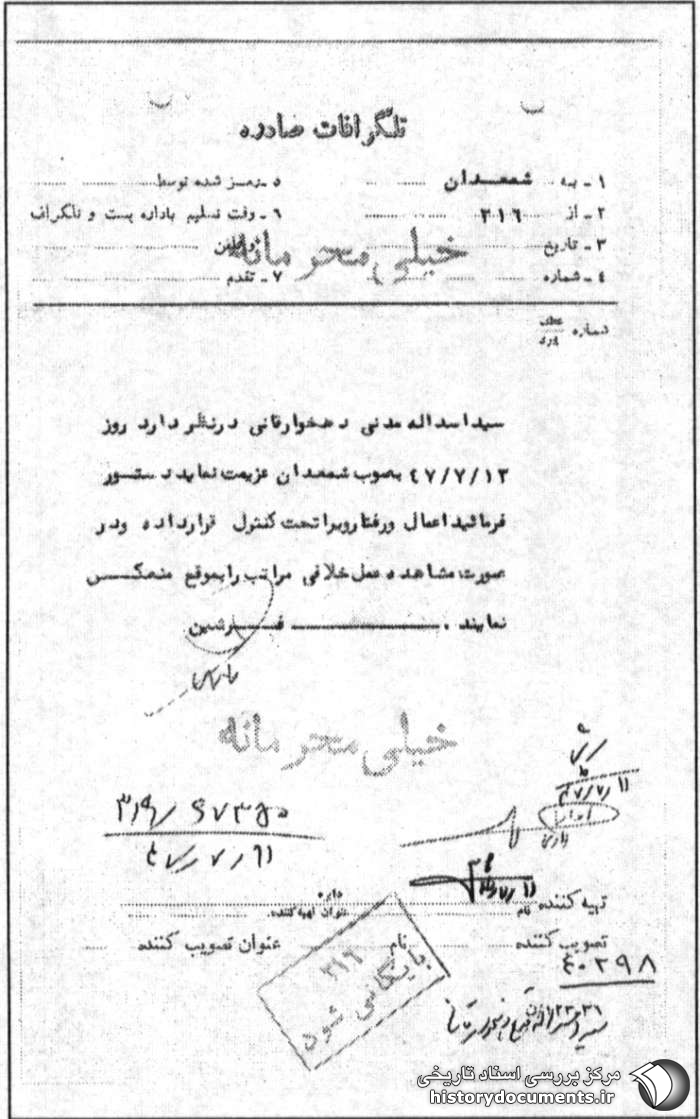 تلگرافات صادره
۱ - به شمعدان
۲ - از ۳۱۶
۳ - تاریخ
۴ - شماره
۵ - رمز شده توسط
۶ - وقت تسلیم باداره پست و تلگراف
۷ - تقدم
خیلی محرمانه
شماره عطف پیرو
سید اسداله مدنی دهخوارقانی درنظر دارد روز
۴۷/۷/۱۳ بصوب شمعدان عزیمت نماید دستور
فرمائید اعمال ورفتارویرا تحت کنترل قرارداده ودر
صورت مشاهده عمل خلافی مراتب رابموقع منعکس
نمایند .
خیلی محرمانه
۴۷/۷/۱۱
تهیه کننده نام عنوان تهیه کننده
تصویب کننده نام عنوان تصویب کننده
۳۱۶
بایگانی شود
۴۰۲۹۸
مرکز بررسی اسناد تاریخی
historydocuments.ir